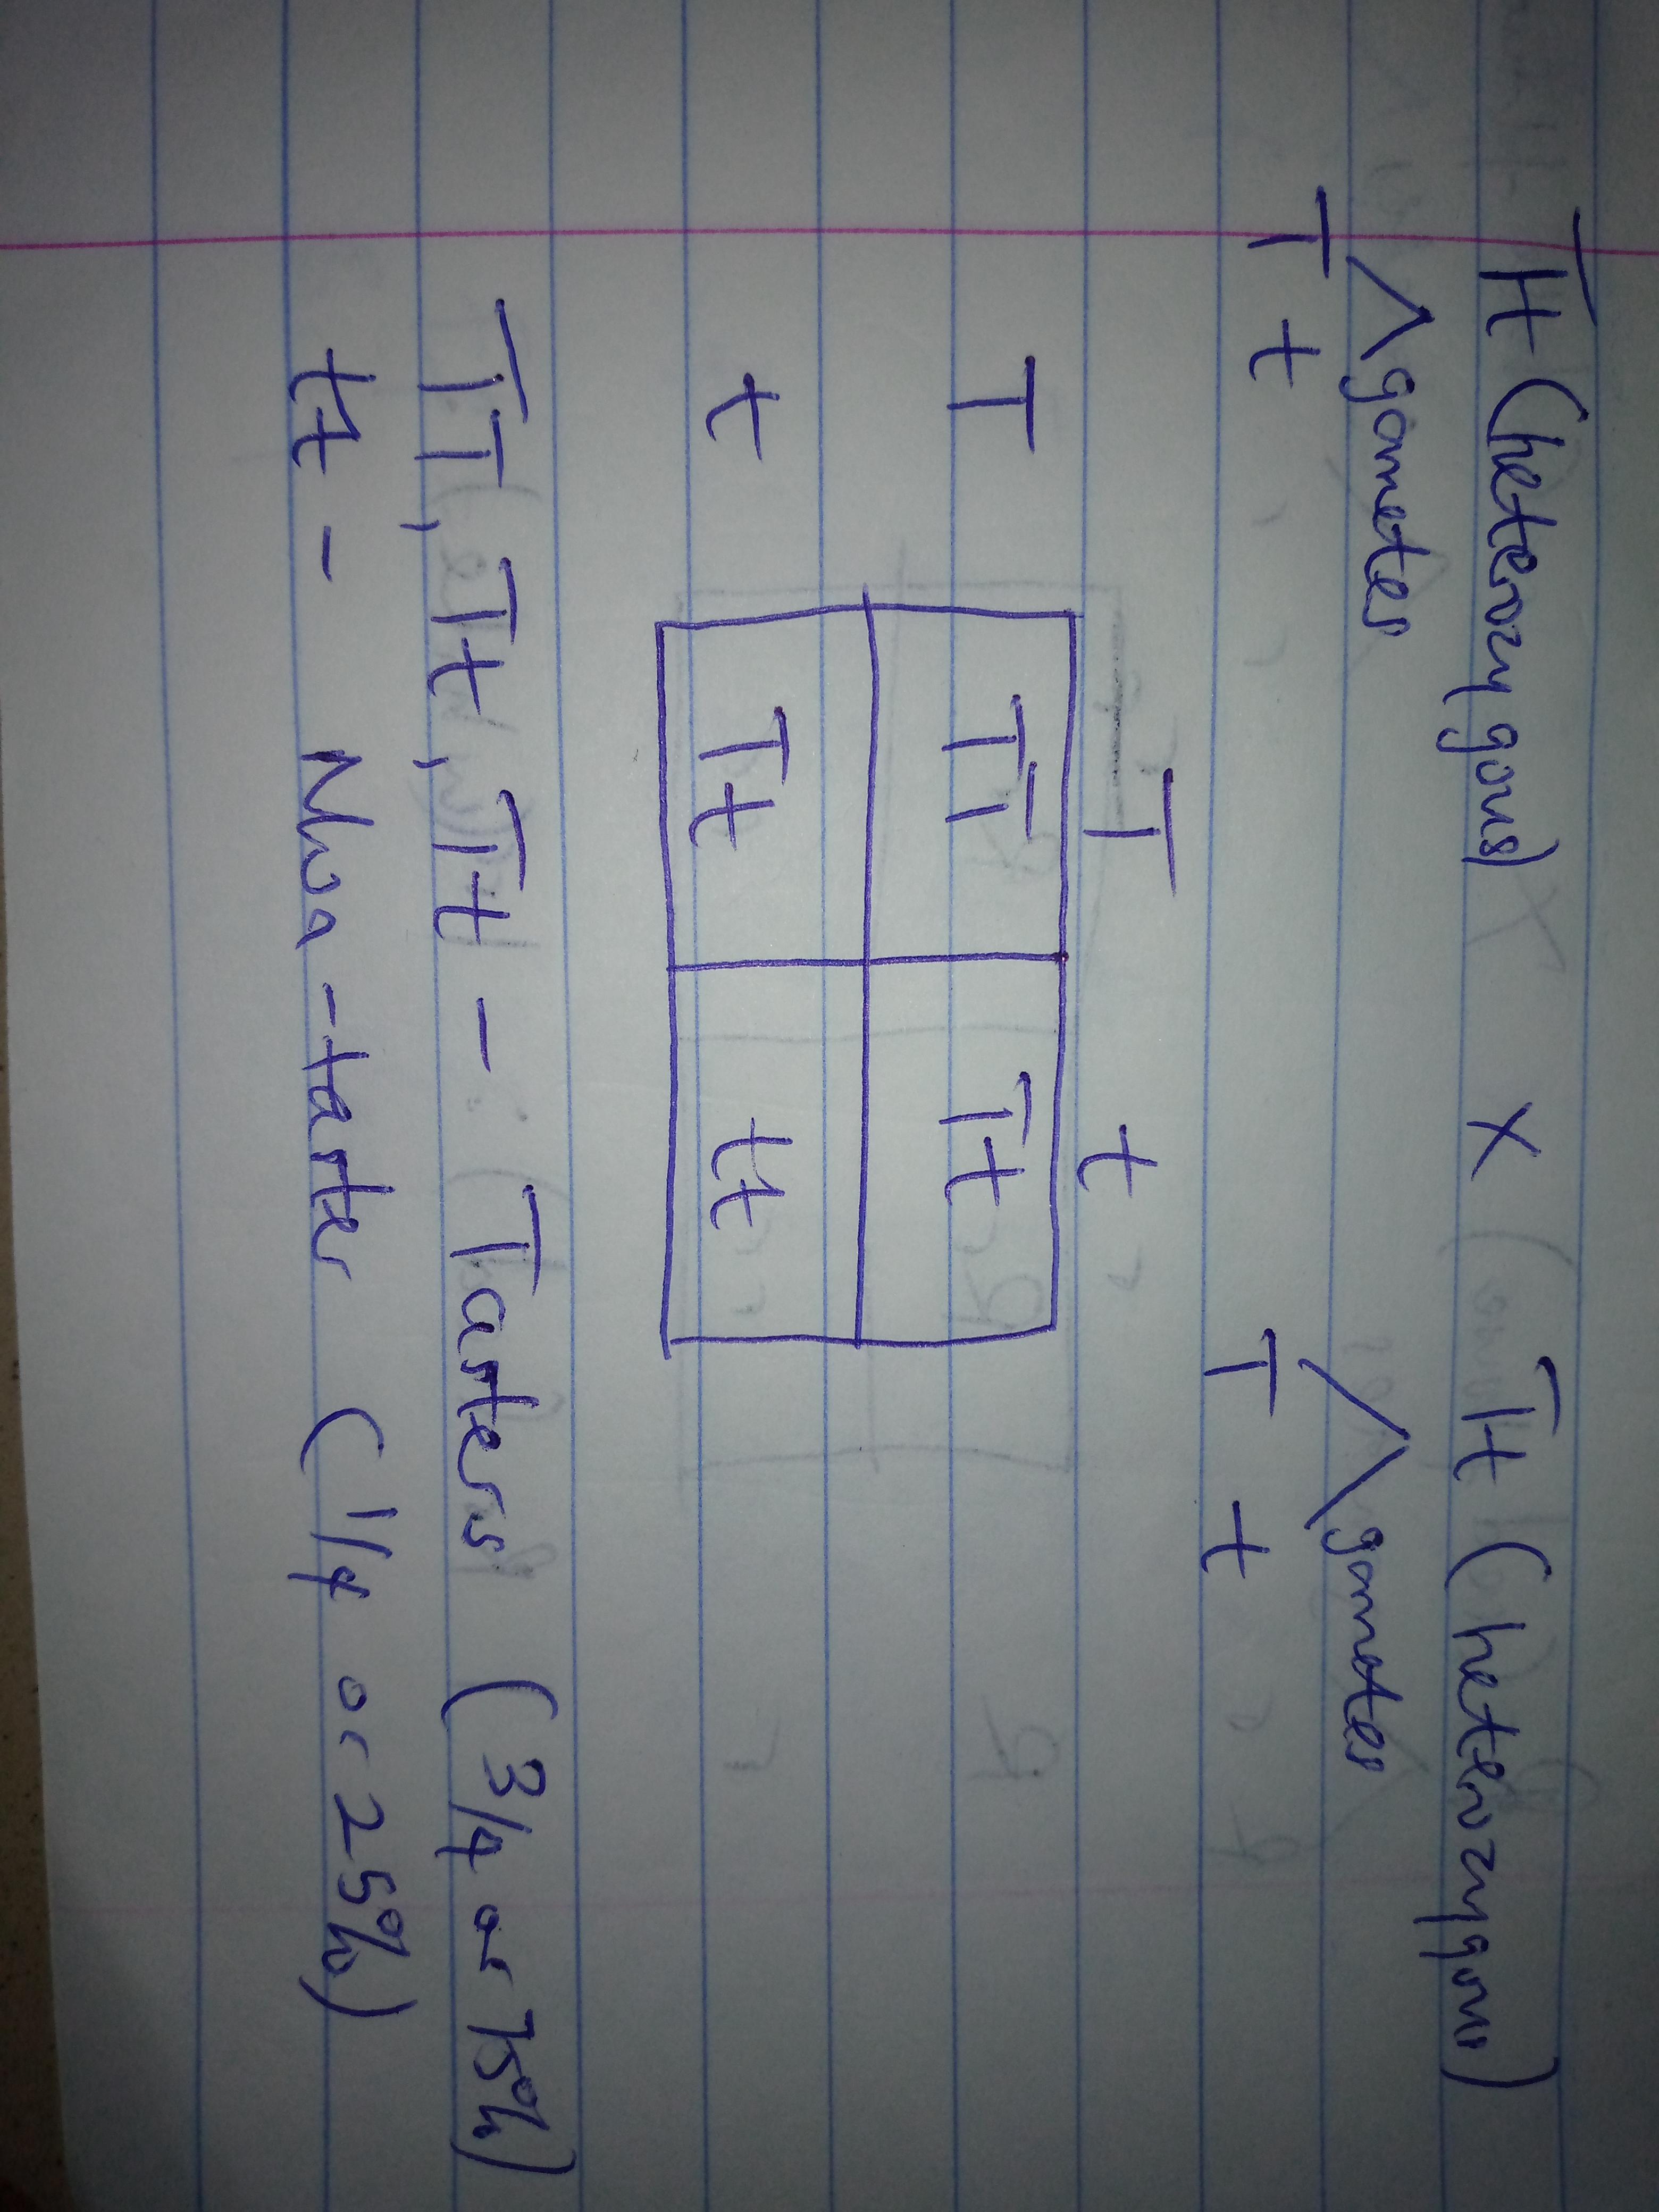 Tt (heterozygous) X Tt (heterozygous)
gametes gametes
T t T t
T t
T TT Tt
t Tt tt
TT, Tt, Tt - Tasters (3/4 or 75%)
tt - Non-taster (1/4 or 25%)